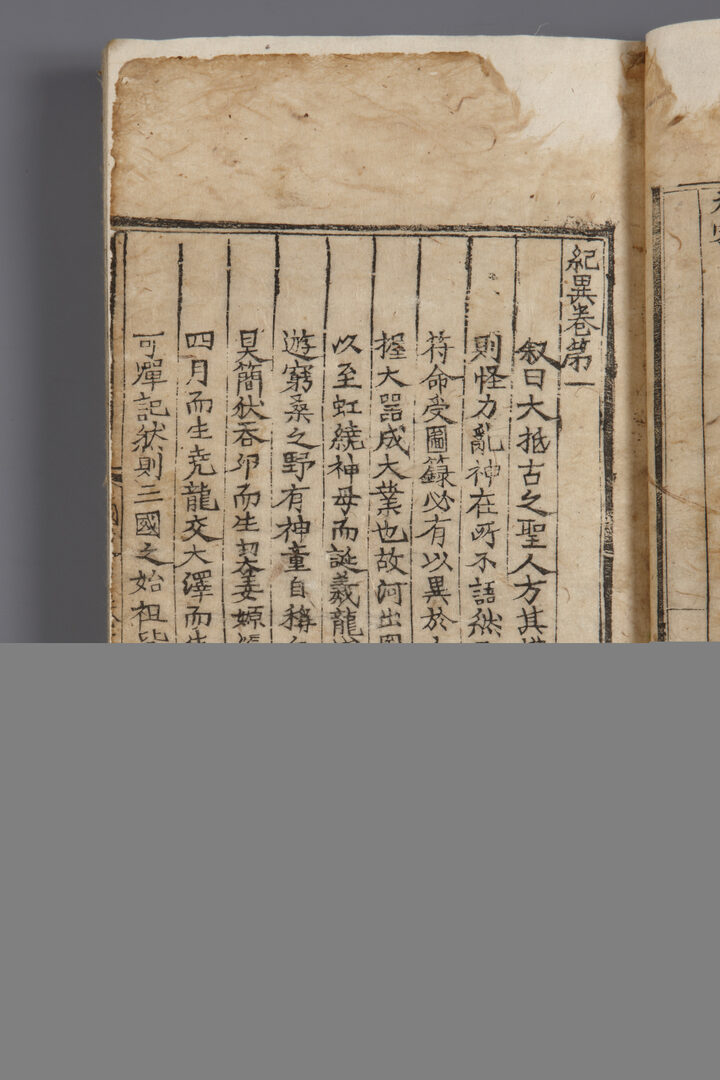 紀異卷第一
叙曰大抵古之聖人方其
則怪力亂神在所不語然
符命受圖籙必有以異於
握大器成大業也故河出圖
以至虹繞神母而誕羲龍
遊窮桑之野有神童自稱
昊簡狄吞卵而生契姜嫄
四月而生堯龍交大澤而生
可殫記然則三國之始祖皆